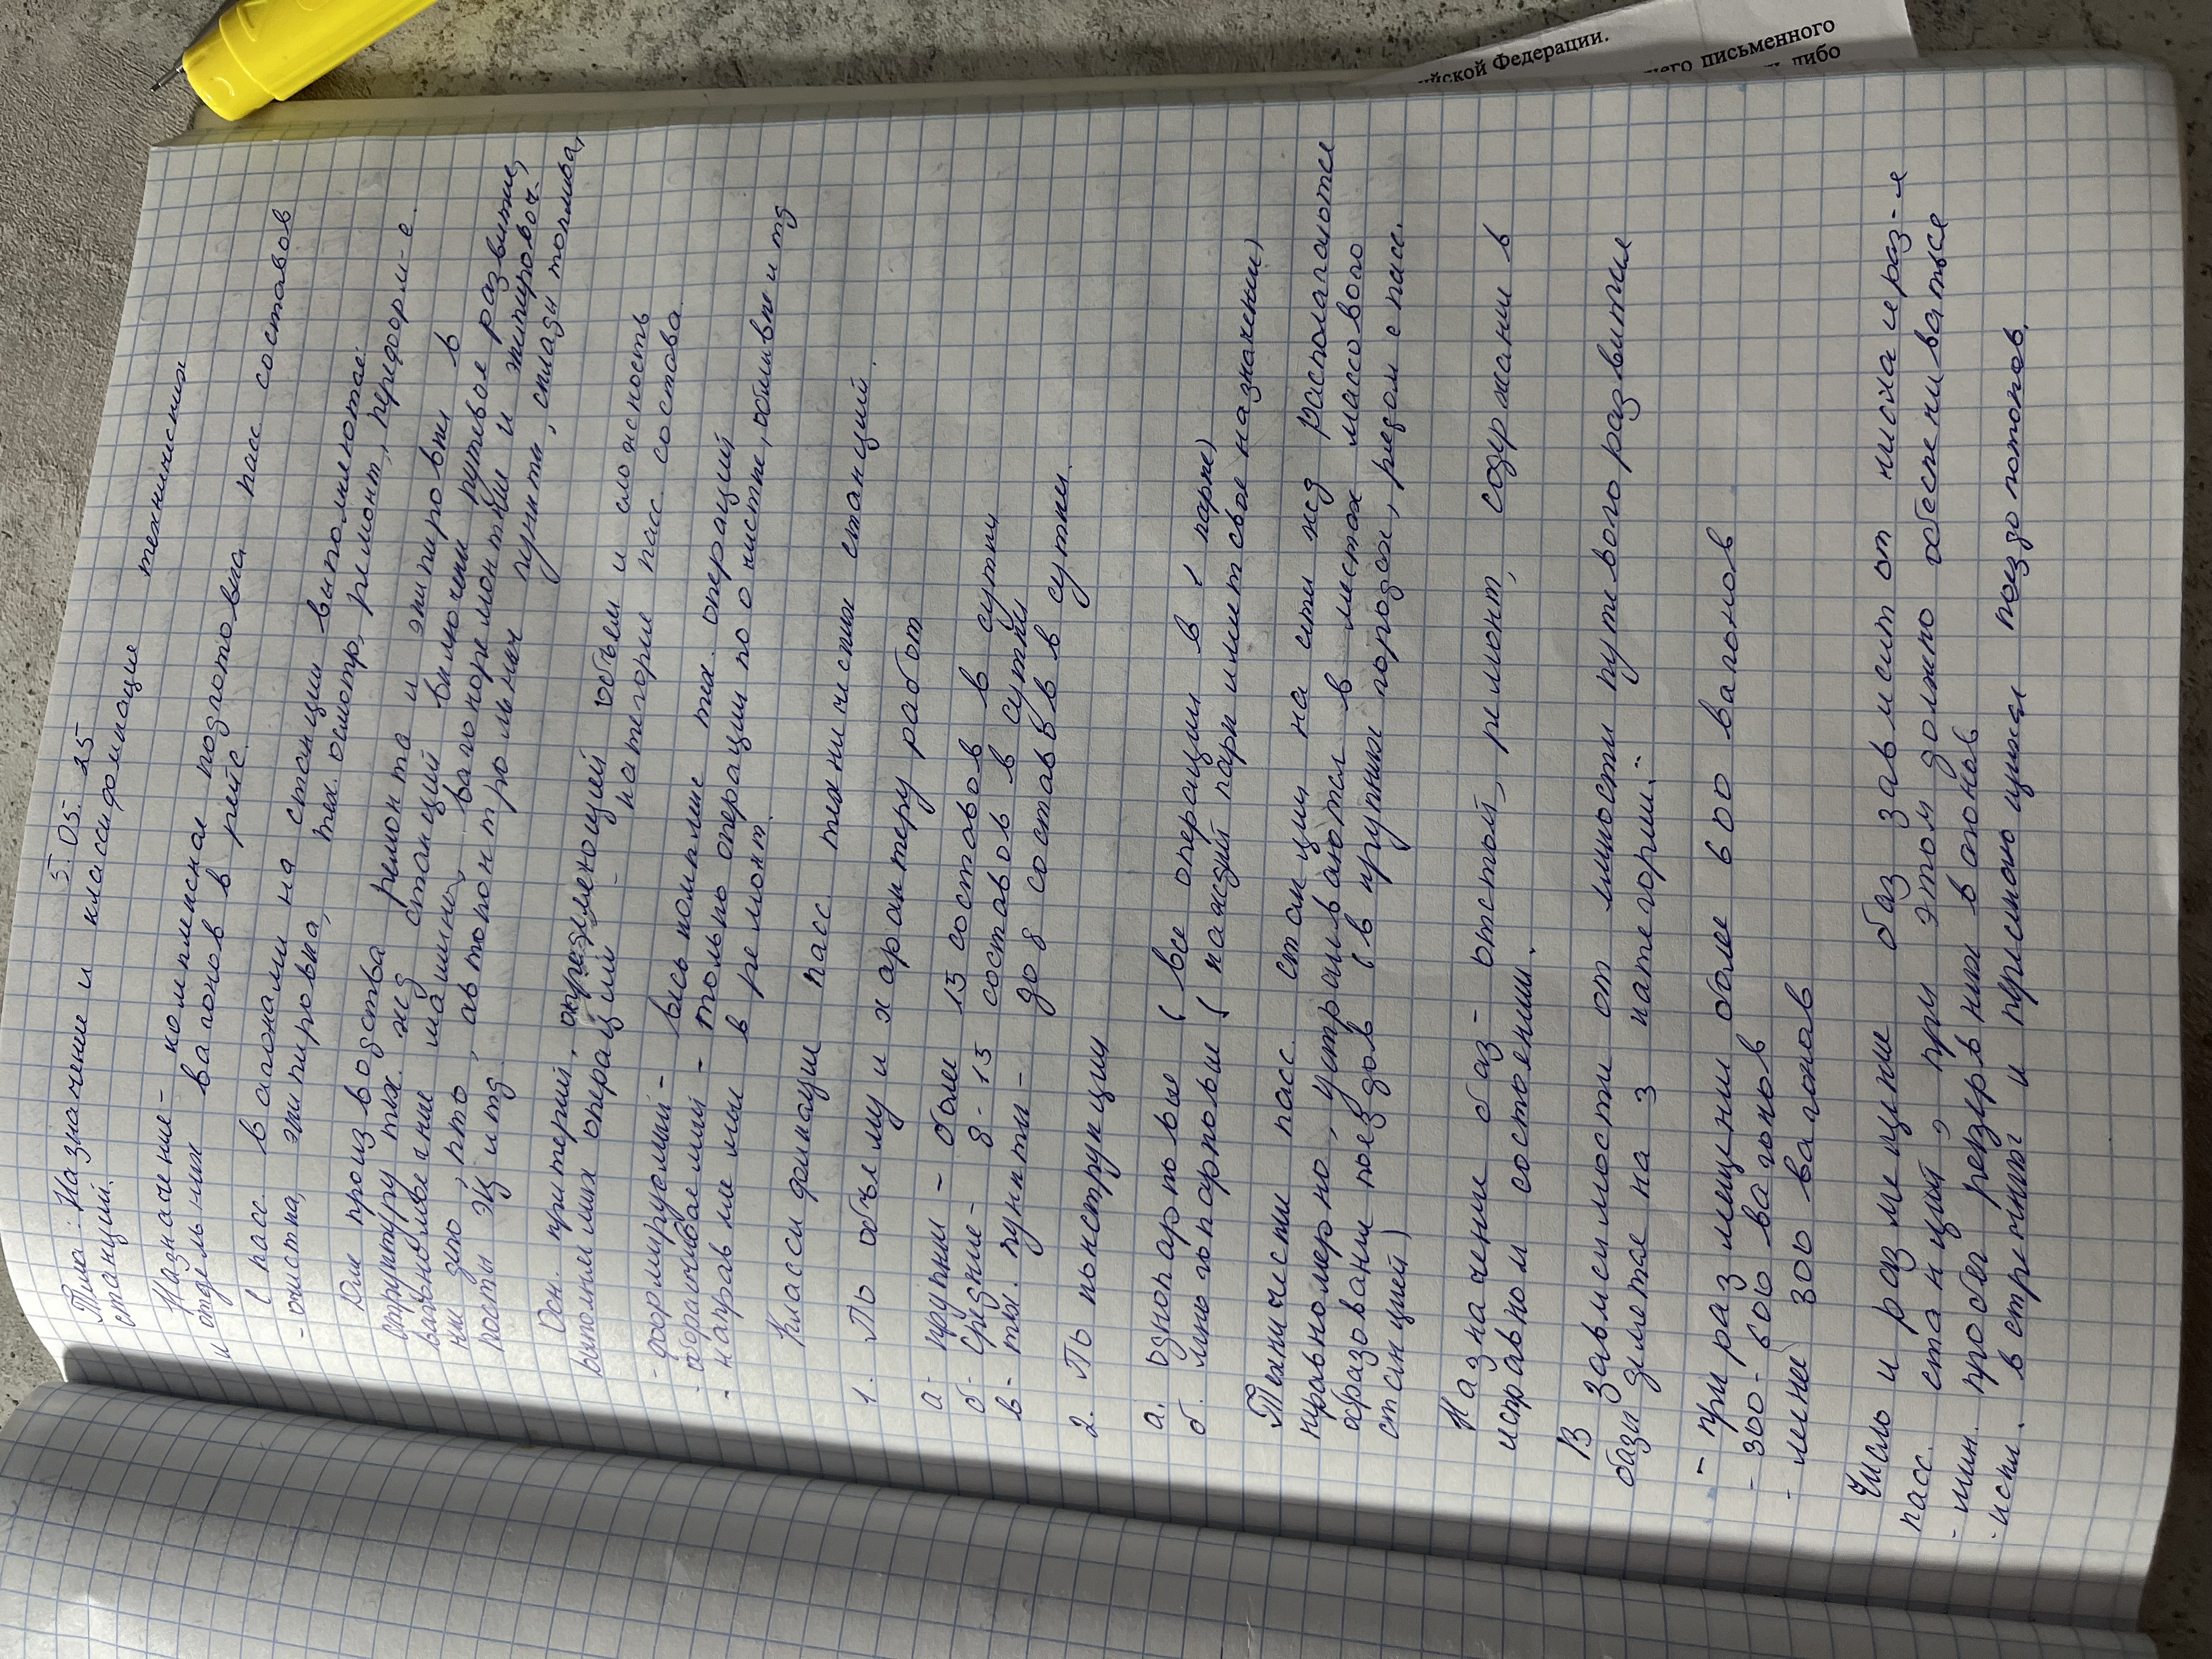 5.05.25
Тема: Назначение и классификация технических
станций.
Назначение - комплексная подготовка пасс составов
и отдельных вагонов в рейс.
С пасс вагонами на станции выполняются:
- очистка, экипировка, тех. осмотр, ремонт, переформ-е.
Для производства ремонта и экипировки в
структуру тех. жд станций включены путевое развитие,
вагономоечные машины, вагоноремонтные и экипировоч.
ки депо, пто, автоконтрольных пункты, склады топлива,
посты ЭЦ и тд.
Осн. критерий, определяющей объем и сложность
выполняемых операций - категория пасс. состава.
- формируемый - весь комплекс тех. операций
- оборачиваемый - только операции по очистке, обмывке и тд
- направляемые в ремонт.
Классификация пасс технических станций.
1. По объему и характеру работ
а - крупные - более 15 составов в сутки
б - средние - 8-15 составов в сутки
в - тех. пункты - до 8 составов в сутки.
2. По конструкции
а. однопарковые (все операции в 1 парке)
б. многопарковые (каждый парк имеет свое назначение)
Технически пасс. станции на сети жд располагаются
неравномерно, устраиваются в местах массового
образования поездов (в крупных городах, рядом с пасс.
станцией)
Назначение баз - отстой, ремонт, содержание в
исправном состоянии.
В зависимости от емкости путевого развития
базы делятся на 3 категории:
- при размещении более 600 вагонов
- 300-600 вагонов
- менее 300 вагонов
Число и размещение баз зависит от числа и раз-я
пасс. станций, при этом должно обеспечиваться
- мин. пробег резервных вагонов
- искл. встречных и пересекающихся поездопотоков.
ийской Федерации.
него письменного
либо